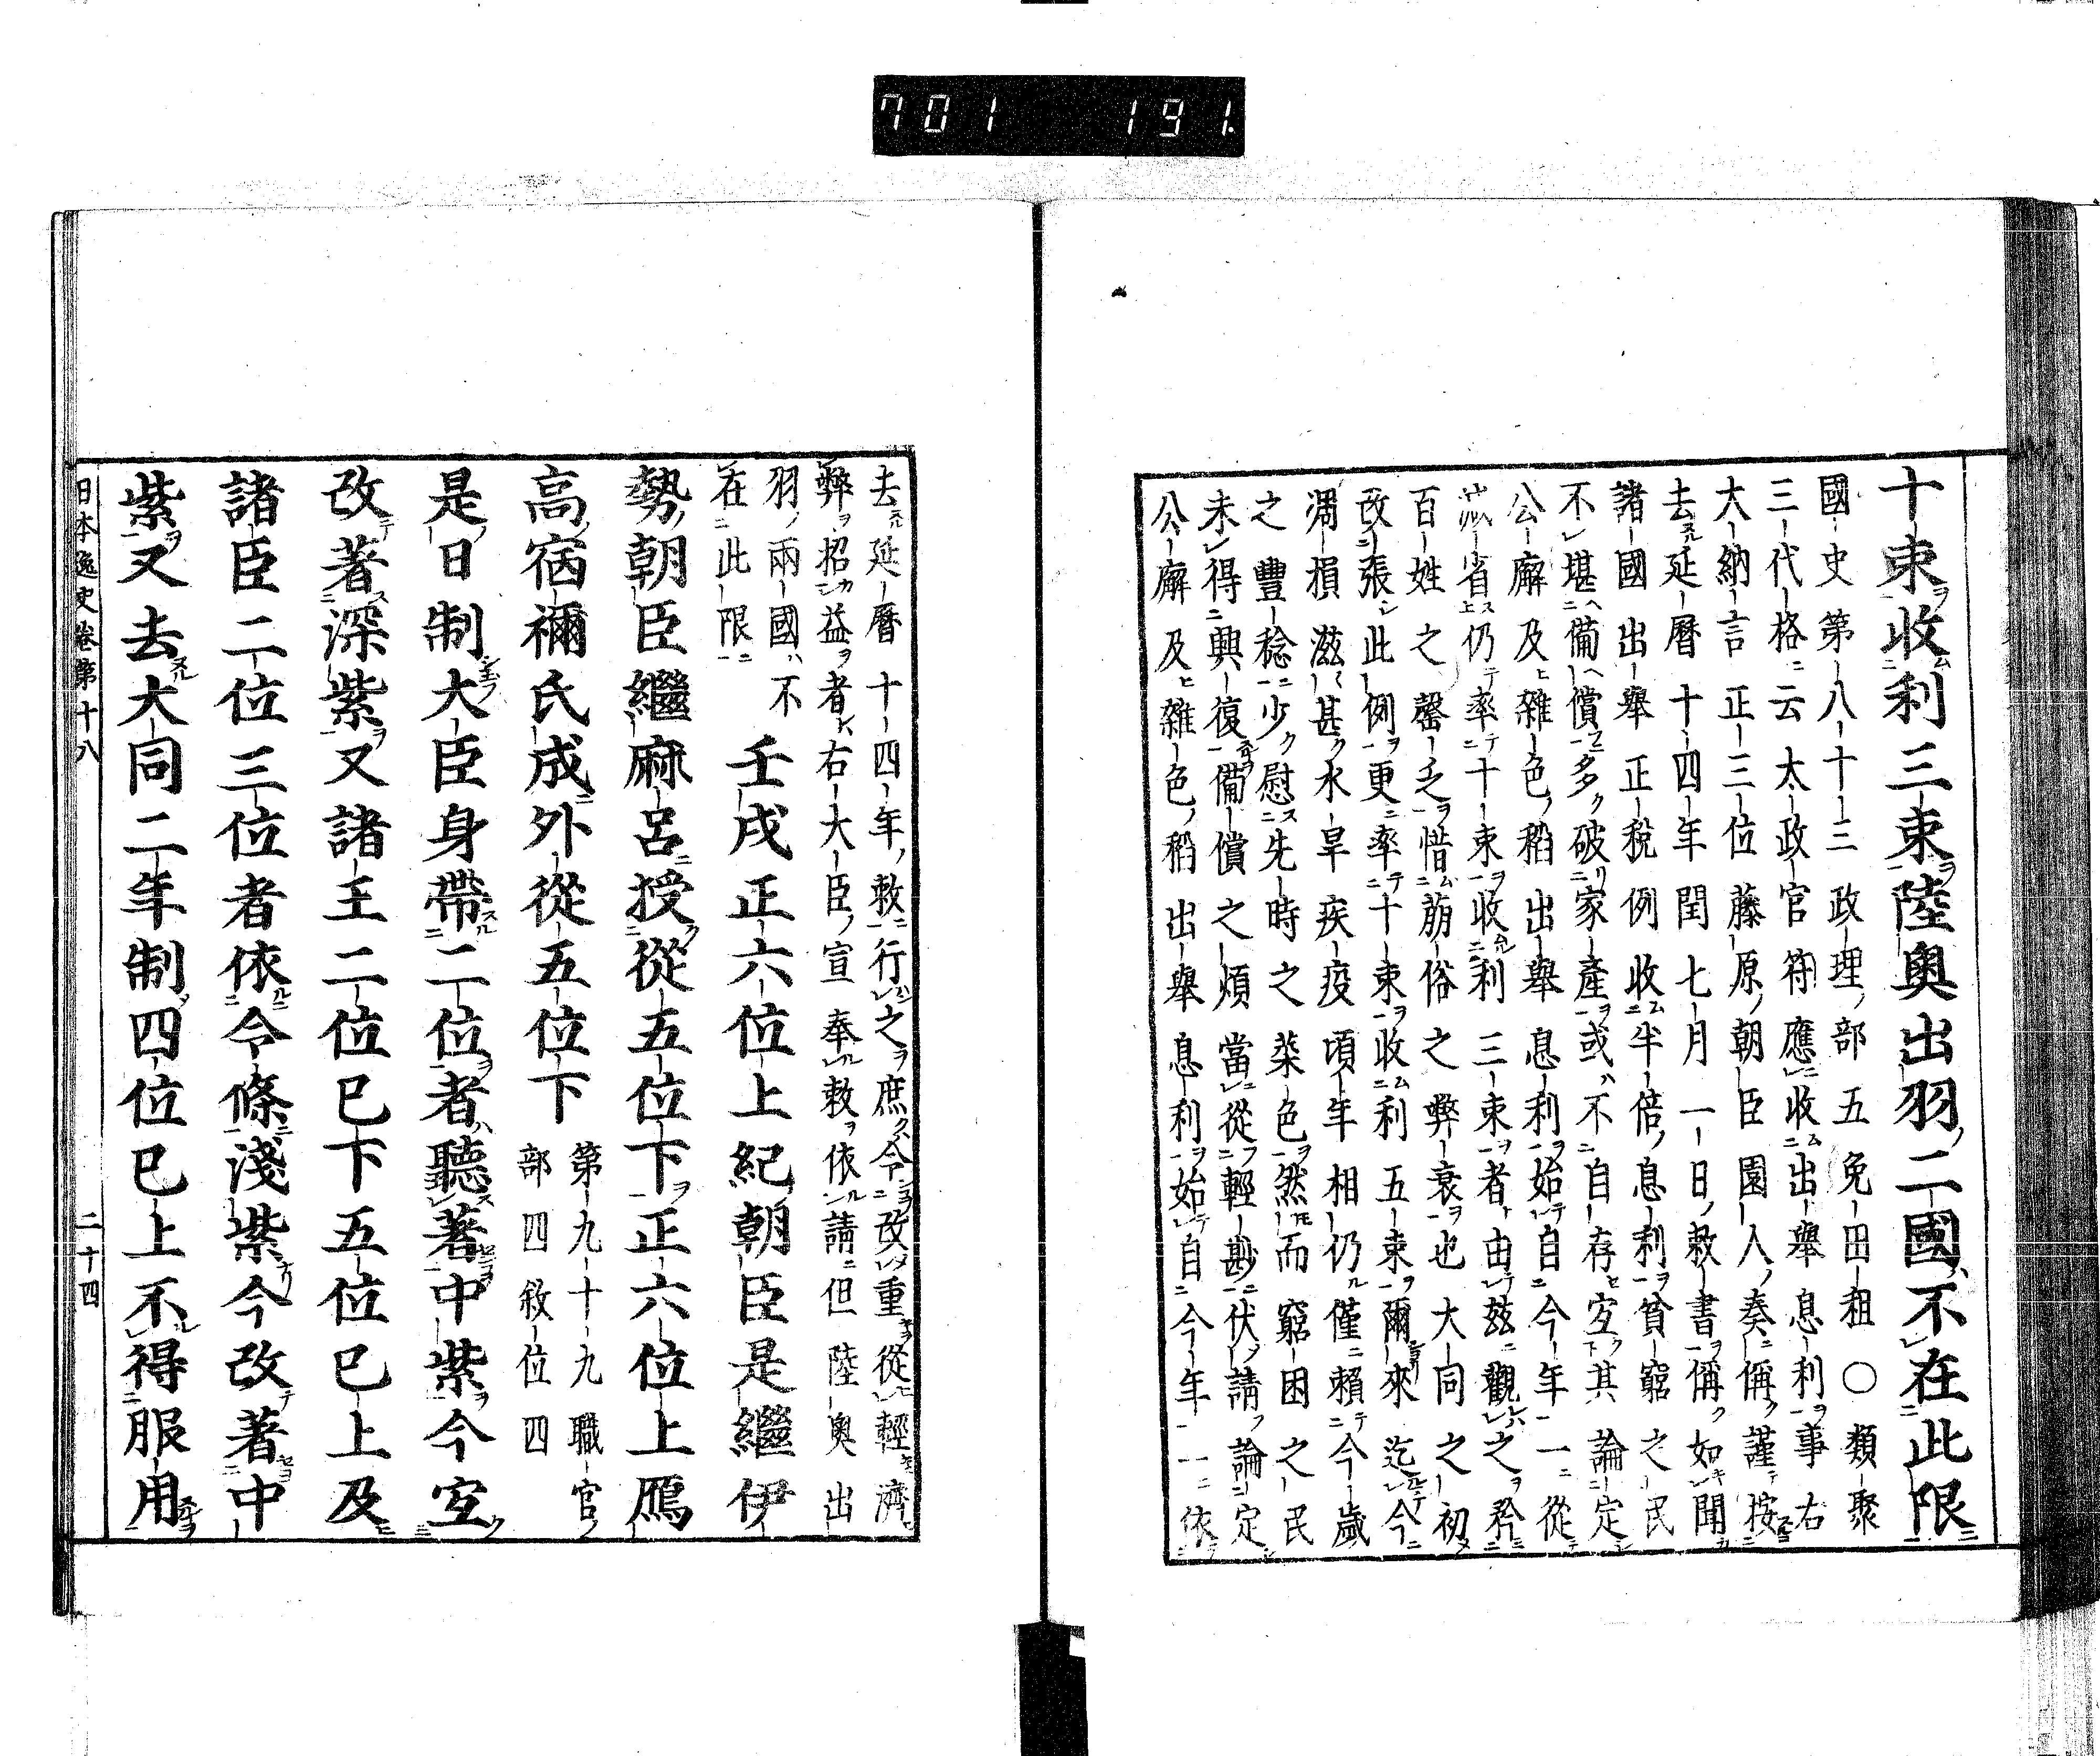 701 191
十束收利三束陸奥出羽二國不在此限
國史第八十二政理部五免田租○類聚
三代格云太政官符應收出擧息利事右
大納言正三位藤原朝臣園人奏偁謹按
去延曆十四年閏七月一日敕書偁如聞
諸國出擧正稅例收半倍息利貧窮之民
不堪備償多破家產或不自存宜其論定
公廨及雜色稻出擧息利始自今年一從
減省仍率十束收利三束者由玆觀之矜
百姓之罄乏惜萠俗之弊衰也大同之初
改張此例更率十束收利五束爾來迄今
凋損滋甚水旱疾疫頃年相仍僅賴今歲
之豐稔少慰先時之菜色然而窮困之民
未得興復備償之煩當從輕尠伏請論定
公廨及雜色稻出擧息利始自今年一依
去延曆十四年敕行之庶令改重從輕濟
弊招益者右大臣宣奉敕依請但陸奥出
羽兩國不
在此限
壬戌正六位上紀朝臣是繼伊
勢朝臣繼麻呂授從五位下正六位上鴈
高宿禰氏成外從五位下
第九十九職官
部四敘位四
是日制大臣身帶二位者聽著中紫今宜
改著深紫又諸王二位已下五位已上及
諸臣二位三位者依令條淺紫今改著中
紫又去大同二年制四位已上不得服用
日本逸史卷第十八 二十四